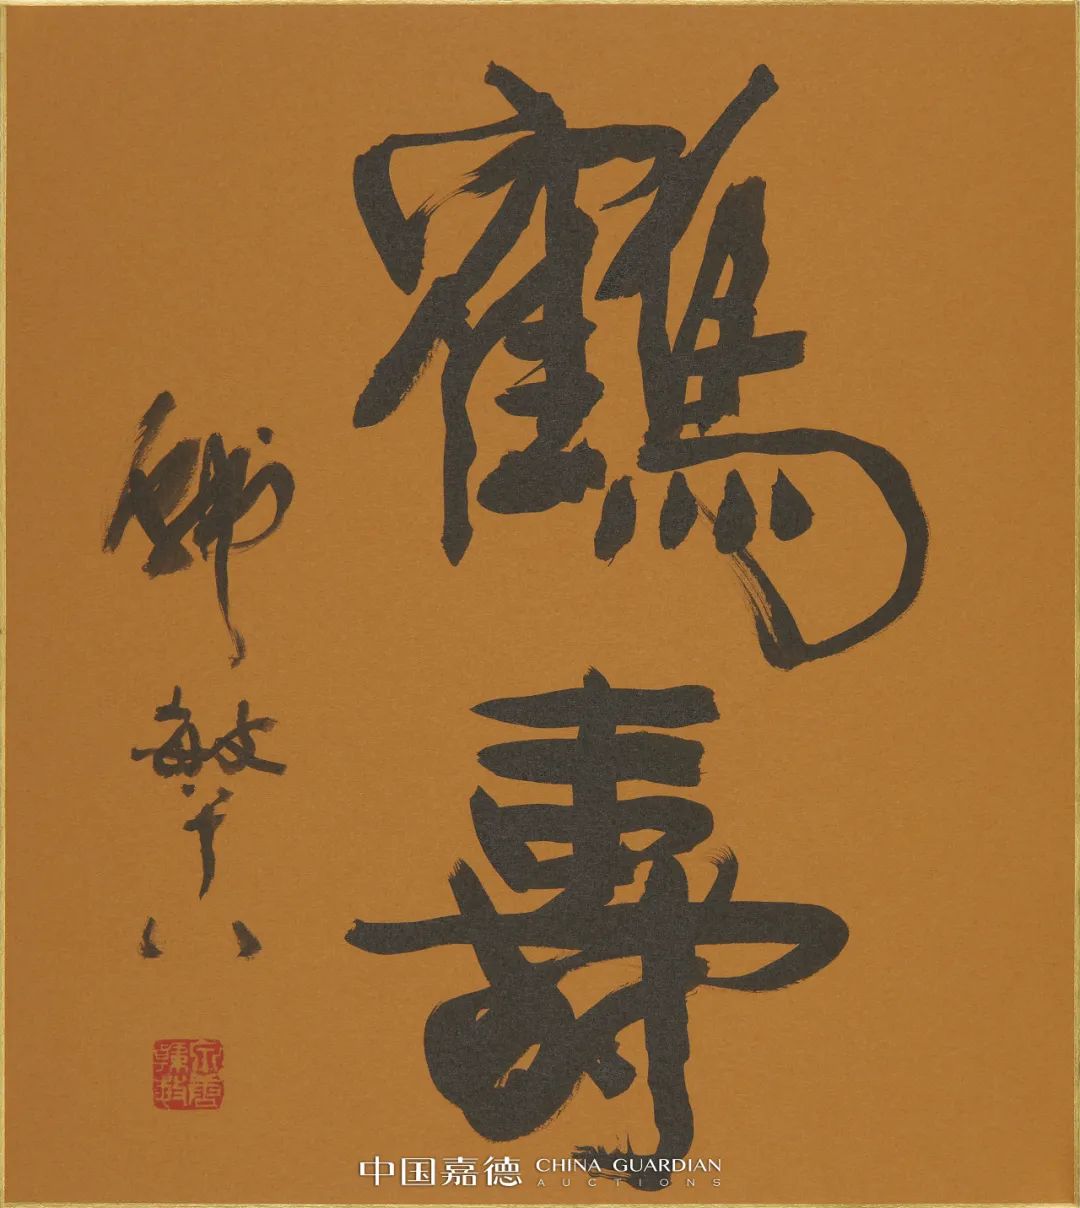 鶴壽
韓敏
韓敏
中国嘉德 CHINA GUARDIAN
AUCTIONS